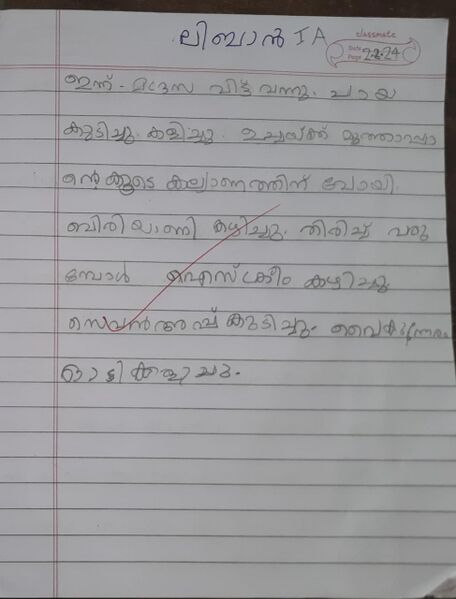 ലിബാൻ I A
classmate
Date 2-2-24
Page
ഇന്ന് - മദ്റസ വിട്ട് വന്നു. ചായ
കുടിച്ചു. കളിച്ചു. ഉച്ചയ്ക്ക് മൂത്താപ്പാ
ന്റെകൂടെ കല്യാണത്തിന് പോയി.
ബിരിയാണി കഴിച്ചു. തിരിച്ച് വരു
മ്പോൾ ഐസ്ക്രീം കഴിച്ചു.
സെവൻഅപ്പ് കുടിച്ചു. വൈകുന്നേരം
ഓടിക്കളിച്ചു.